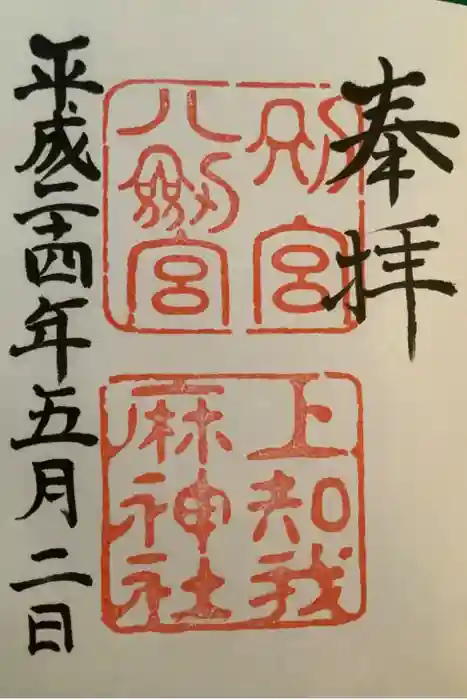 奉拝
別宮
八劔宮
上知我
麻神社
平成二十四年五月二日